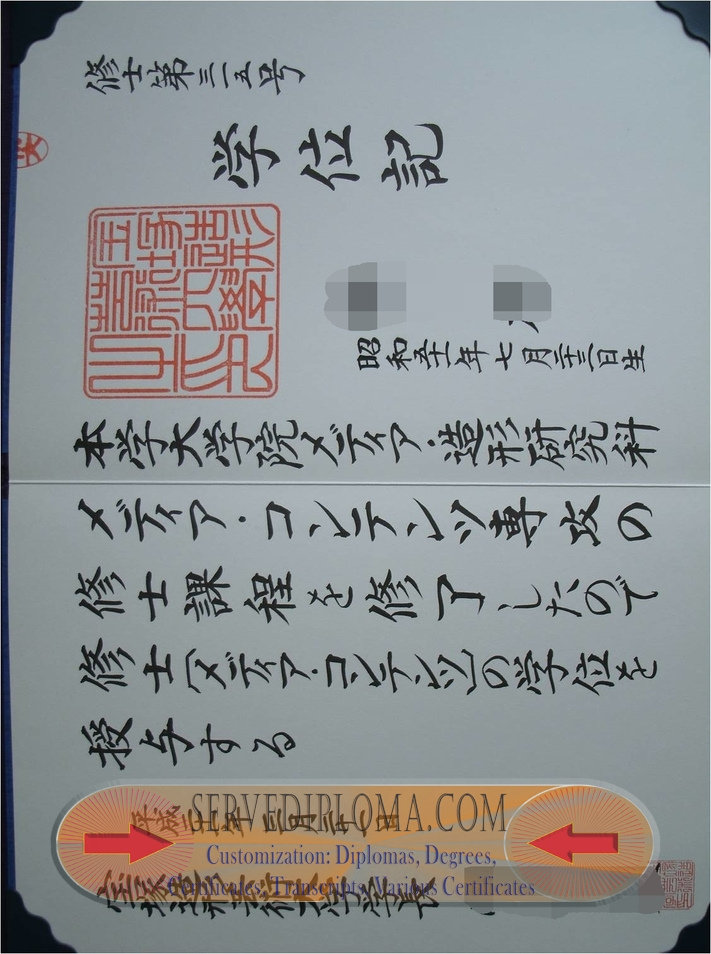 修士第三一五号
学位記
昭和五十一年七月二十三日生
本学大学院メディア・造形研究科
メディア・コンテンツ専攻の
修士課程を修了したので
修士〔メディア・コンテンツ〕の学位を
授与する
平成 年三月 日
宝塚造形芸術大学学長
SERVEDIPLOMA.COM
Customization: Diplomas, Degrees,
Certificates, Transcripts, Various Certificates